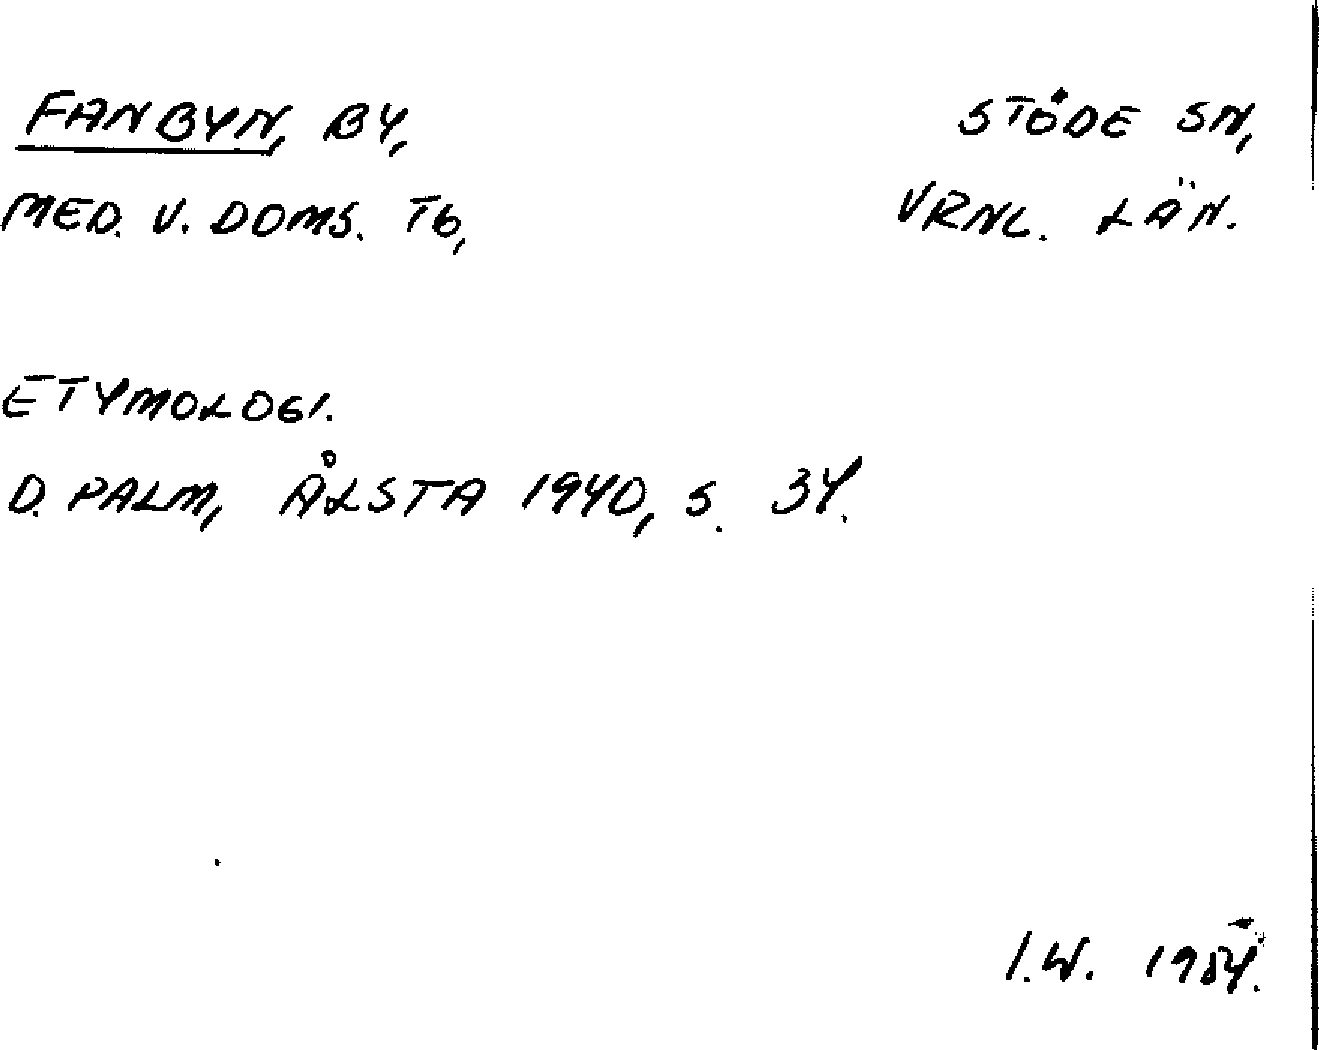 FANBYN, BY, STÖDE SN,
MED. V. DOMS. TG, VRNL. LÄN.
ETYMOLOGI.
D. PALM, ÅLSTA 1940, S. 34.
I.W. 1954.